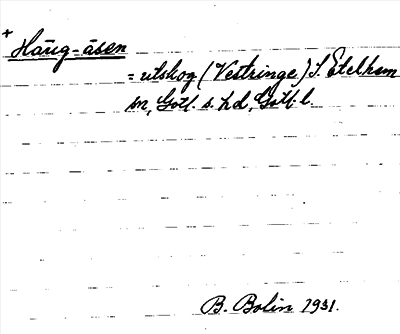 +
Häug-åsen
= utskog (Vestringe) S. Etelhem
sn, Gotl. s. hd, Gotl. l.
B. Bolin 1931.